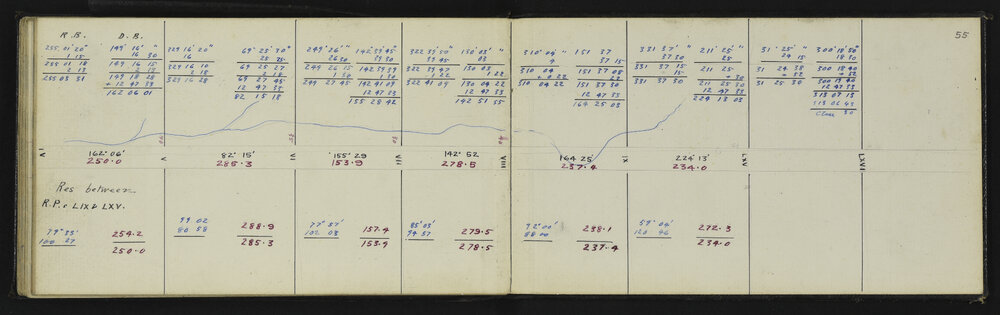 55
R.B. D.B.
255 01' 20" 149° 16' "
1 15 16 30
255 01 18 149 16 15
2 13 2 13
255 03 31 149 18 28
+ 12 47 33
162 06 01
329 16' 20" 69° 25' 30"
16 25 25
329 16 10 69 25 27
2 18 2 18
329 16 28 69 27 45
12 47 33
82 15 18
249° 26' " 142° 39' 45"
26 30 39 30
249 26 15 142 39 39
1 30 1 30
249 27 45 142 41 09
12 47 33
155 28 42
322 39' 50" 130° 03' "
39 45 03
322 39 47 130 03
1 22 1 22
322 41 09 130 04 22
12 47 33
142 51 55
310° 04' " 151 37
4 37 15
310 04 151 37 08
+ 0 22 22
310 04 22 151 37 30
12 47 33
164 25 03
331 37' " 211° 25' "
37 30 25
331 37 15 211 25
15 + 30
331 37 30 211 25 30
12 47 33
224 13 03
31° 25' " 300° 18' 50"
24 15 18 30
31 24 38 300 18 40
+ 52 + 52
31 25 30 300 19 40
12 47 33
313 07 13
313 06 43
Close 30
VI V VI VII VIII IX LXV LXVI
162° 06' 82° 15' 155° 29 142° 52 164 25' 224° 13'
250.0 285.3 153.9 278.5 237.4 234.0
Res between
R.P.s LIX & LXV.
79° 33' 254.2
100 27 250.0
99 02 288.9
80 58 285.3
77° 57' 157.4
102 03 153.9
85° 03' 279.5
94 57 278.5
92° 00' 238.1
88 00 237.4
59° 04' 272.3
120 56 234.0